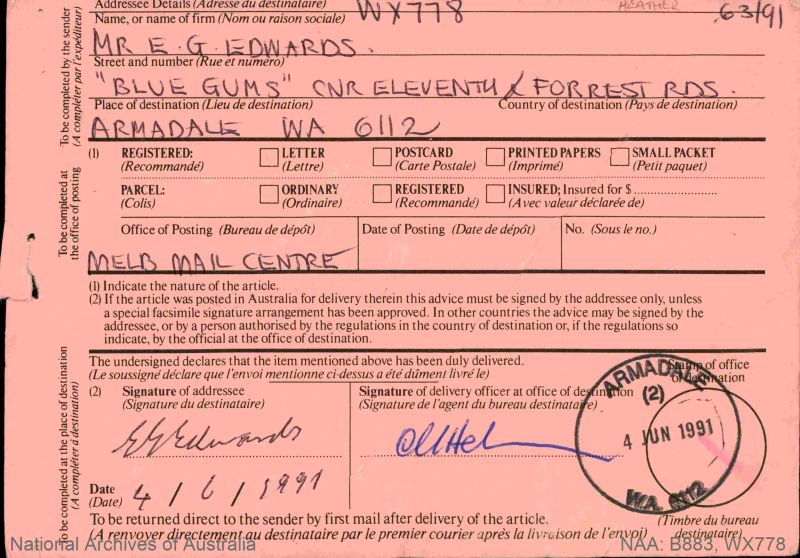 Addressee Details (Adresse du destinataire)
Name, or name of firm (Nom ou raison sociale) WX778 HEATHER 63/91
MR E. G. EDWARDS.
Street and number (Rue et numéro)
"BLUE GUMS" CNR ELEVENTH & FORREST RDS.
Place of destination (Lieu de destination) Country of destination (Pays de destination)
ARMADALE WA 6112
To be completed by the sender
(A compléter par l'expéditeur)
(1) REGISTERED: LETTER POSTCARD PRINTED PAPERS SMALL PACKET
(Recommandé) (Lettre) (Carte Postale) (Imprimé) (Petit paquet)
PARCEL: ORDINARY REGISTERED INSURED; Insured for $
(Colis) (Ordinaire) (Recommandé) (Avec valeur déclarée de)
Office of Posting (Bureau de dépôt) Date of Posting (Date de dépôt) No. (Sous le no.)
MELB MAIL CENTRE
To be completed at
the office of posting
(1) Indicate the nature of the article.
(2) If the article was posted in Australia for delivery therein this advice must be signed by the addressee only, unless
a special facsimile signature arrangement has been approved. In other countries the advice may be signed by the
addressee, or by a person authorised by the regulations in the country of destination or, if the regulations so
indicate, by the official at the office of destination.
The undersigned declares that the item mentioned above has been duly delivered.
(Le soussigné déclare que l'envoi mentionne ci-dessus a été dûment livré le)
Stamp of office
of destination
(2) Signature of addressee Signature of delivery officer at office of destination
(Signature du destinataire) (Signature de l'agent du bureau destinataire)
EGEdwards
ARMADALE
(2)
4 JUN 1991
WA. 6112
Date
(Date) 4/6/1991
To be completed at the place of destination
(A compléter à destination)
To be returned direct to the sender by first mail after delivery of the article. (Timbre du bureau
(A renvoyer directement au destinataire par le premier courier après la livraison de l'envoi) destinataire)
National Archives of Australia NAA: B883, WX778